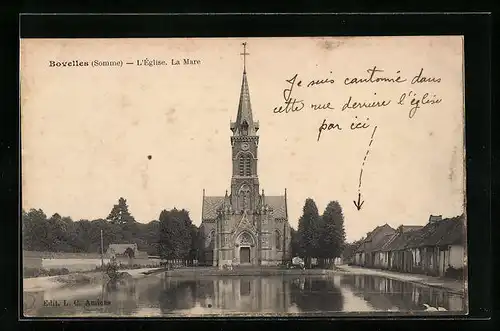 Bovelles (Somme) — L'Église. La Mare
Je suis cantonné dans
cette rue derrière l'église
par ici
Edit. L. C. Amiens